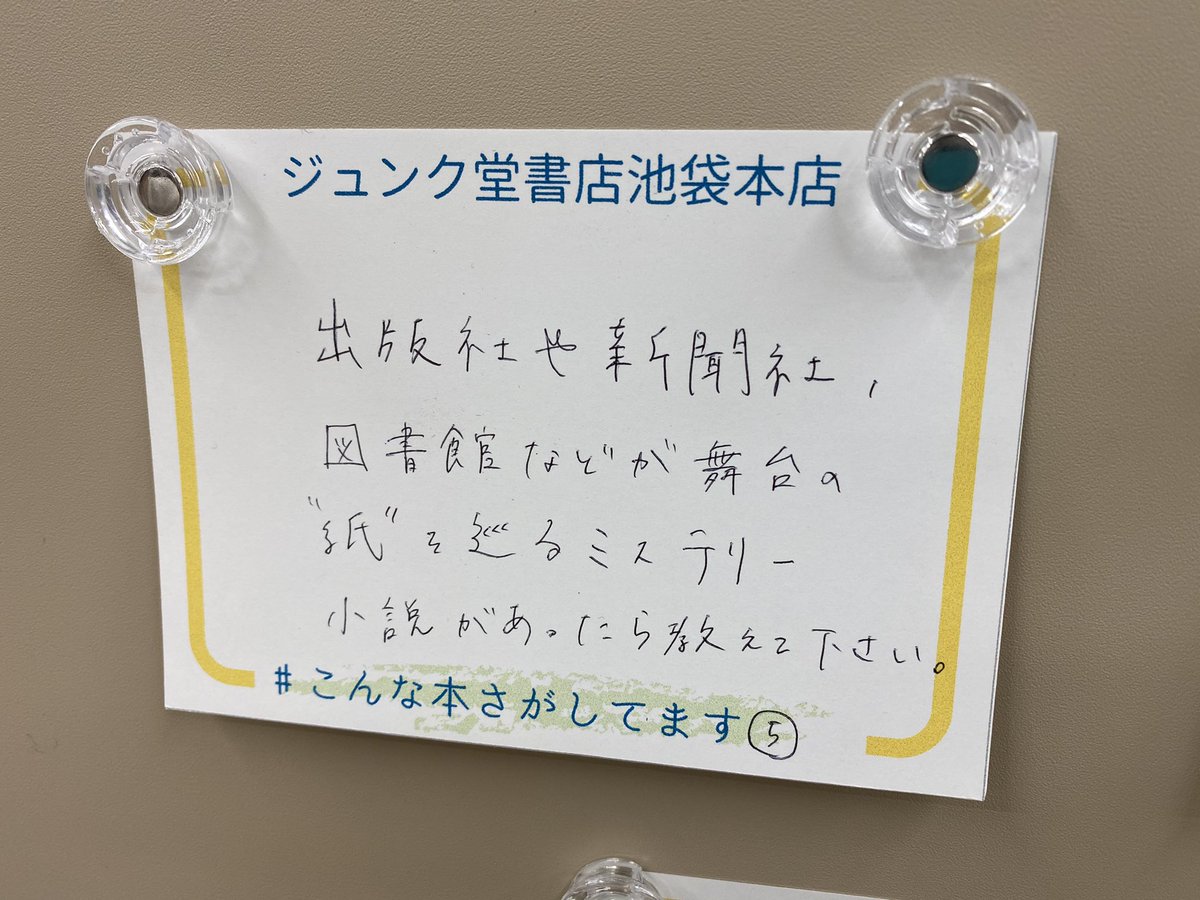 ジュンク堂書店池袋本店
出版社や新聞社、
図書館などが舞台の
"紙"を巡るミステリー
小説があったら教えて下さい。
#こんな本さがしてます⑤